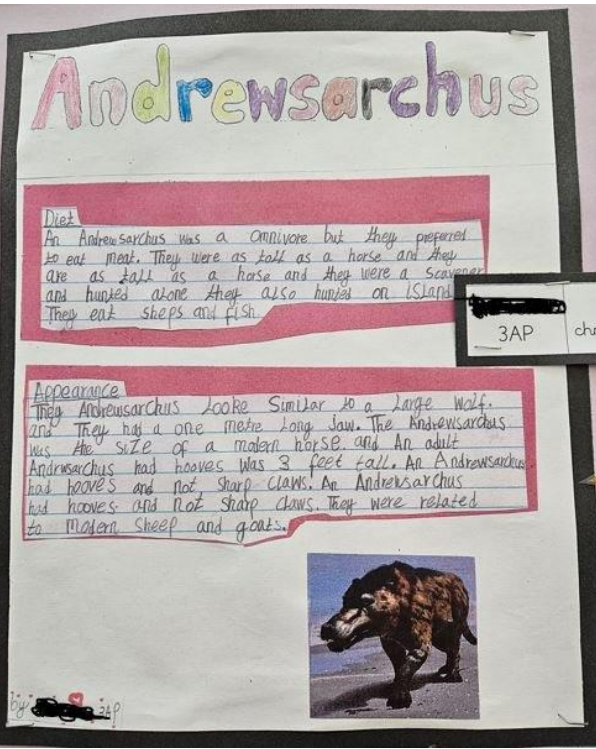 Andrewsarchus
Diet
An Andrewsarchus was a omnivore but they preferred
to eat meat. They were as tall as a horse and they
are as tall as a horse and they were a scavener
and hunted alone they also hunted on island
They eat sheps and fish.
3AP
Appearance
They Andrewsarchus Looke Similar to a Large wolf.
and They had a one metre Long Jaw. The Andrewsarchus
was the size of a modern horse. and An adult
Andrwsarchus had hooves was 3 feet tall. An Andrewsarchus
had hooves and not sharp claws. An Andrewsarchus
had hooves and not sharp claws. They were related
to modern sheep and goats.
by 3AP